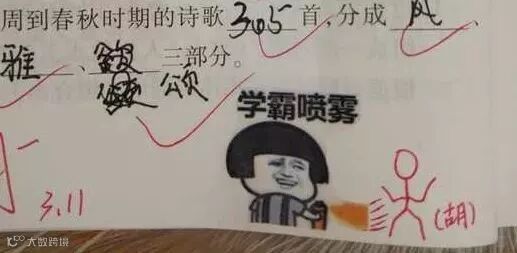 周到春秋时期的诗歌305首,分成风、
雅、三部分。
颂
学霸喷雾
3.11
(胡)
大数跨境